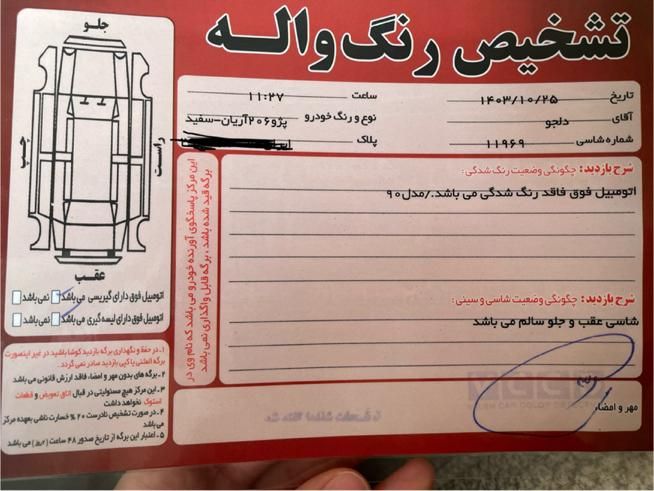 تشخیص رنگ واله
تاریخ ۱۴۰۳/۱۰/۲۵ ساعت ۱۱:۲۷
آقای دلجو نوع و رنگ خودرو پژو۲۰۶آریان-سفید
شماره شاسی ۱۱۹۶۹ پلاک
جلو
راست
چپ
عقب
اتومبیل فوق دارای گیریسی می باشد نمی باشد
اتومبیل فوق دارای لیسه گیری می باشد نمی باشد
شرح بازدید: چگونگی وضعیت رنگ شدگی:
اتومبیل فوق فاقد رنگ شدگی می باشد./مدل۹۰
شرح بازدید: چگونگی وضعیت شاسی و سینی:
شاسی عقب و جلو سالم می باشد
مهر و امضاء
این مرکز پاسخگوی آورنده خودرو می باشد که نام وی در
برگه قید شده باشد، برگه قابل واگذاری نمی باشد
۱ـ در حفظ و نگهداری برگه بازدید کوشا باشید در غیر اینصورت
برگه المثنی یا کپی بازدید صادر نمی گردد.
۲ـ برگه های بدون مهر و امضاء، فاقد ارزش قانونی می باشد
۳ـ این مرکز هیچ مسئولیتی در قبال اتاق تعویض و قطعات
استوک نخواهد داشت
۴ـ در صورت تشخیص نادرست ۲۰٪ خسارت ناشی بعهده مرکز
می باشد
۵ـ اعتبار این برگه از تاریخ صدور ۴۸ ساعت (۲روز) می باشد